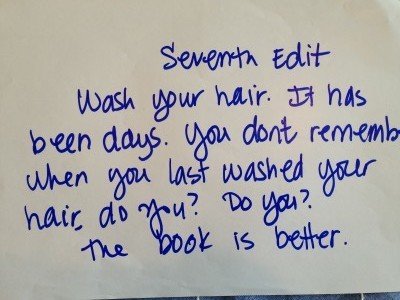 Seventh Edit
Wash your hair. It has
been days. You don't rememb
when you last washed your
hair, do you? Do you?
The book is better.